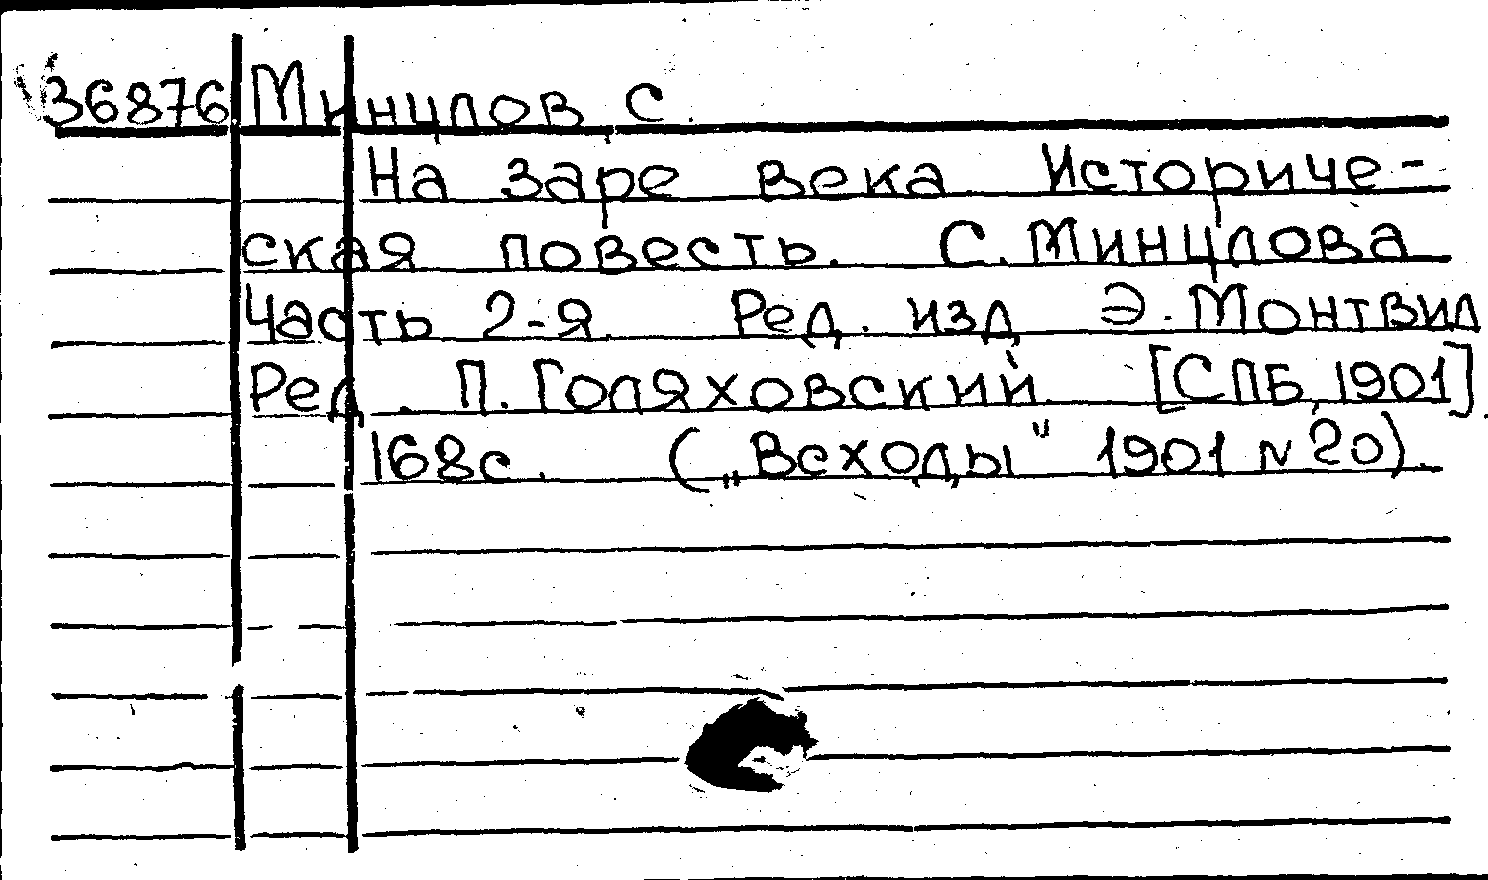 36876 Минцлов С.
На заре века. Историче-
ская повесть. С. Минцлова
Часть 2-я. Ред. изд Э. Монтвид
Ред. П. Голяховский. [СПБ, 1901].
168с. („Всходы" 1901 N 20).